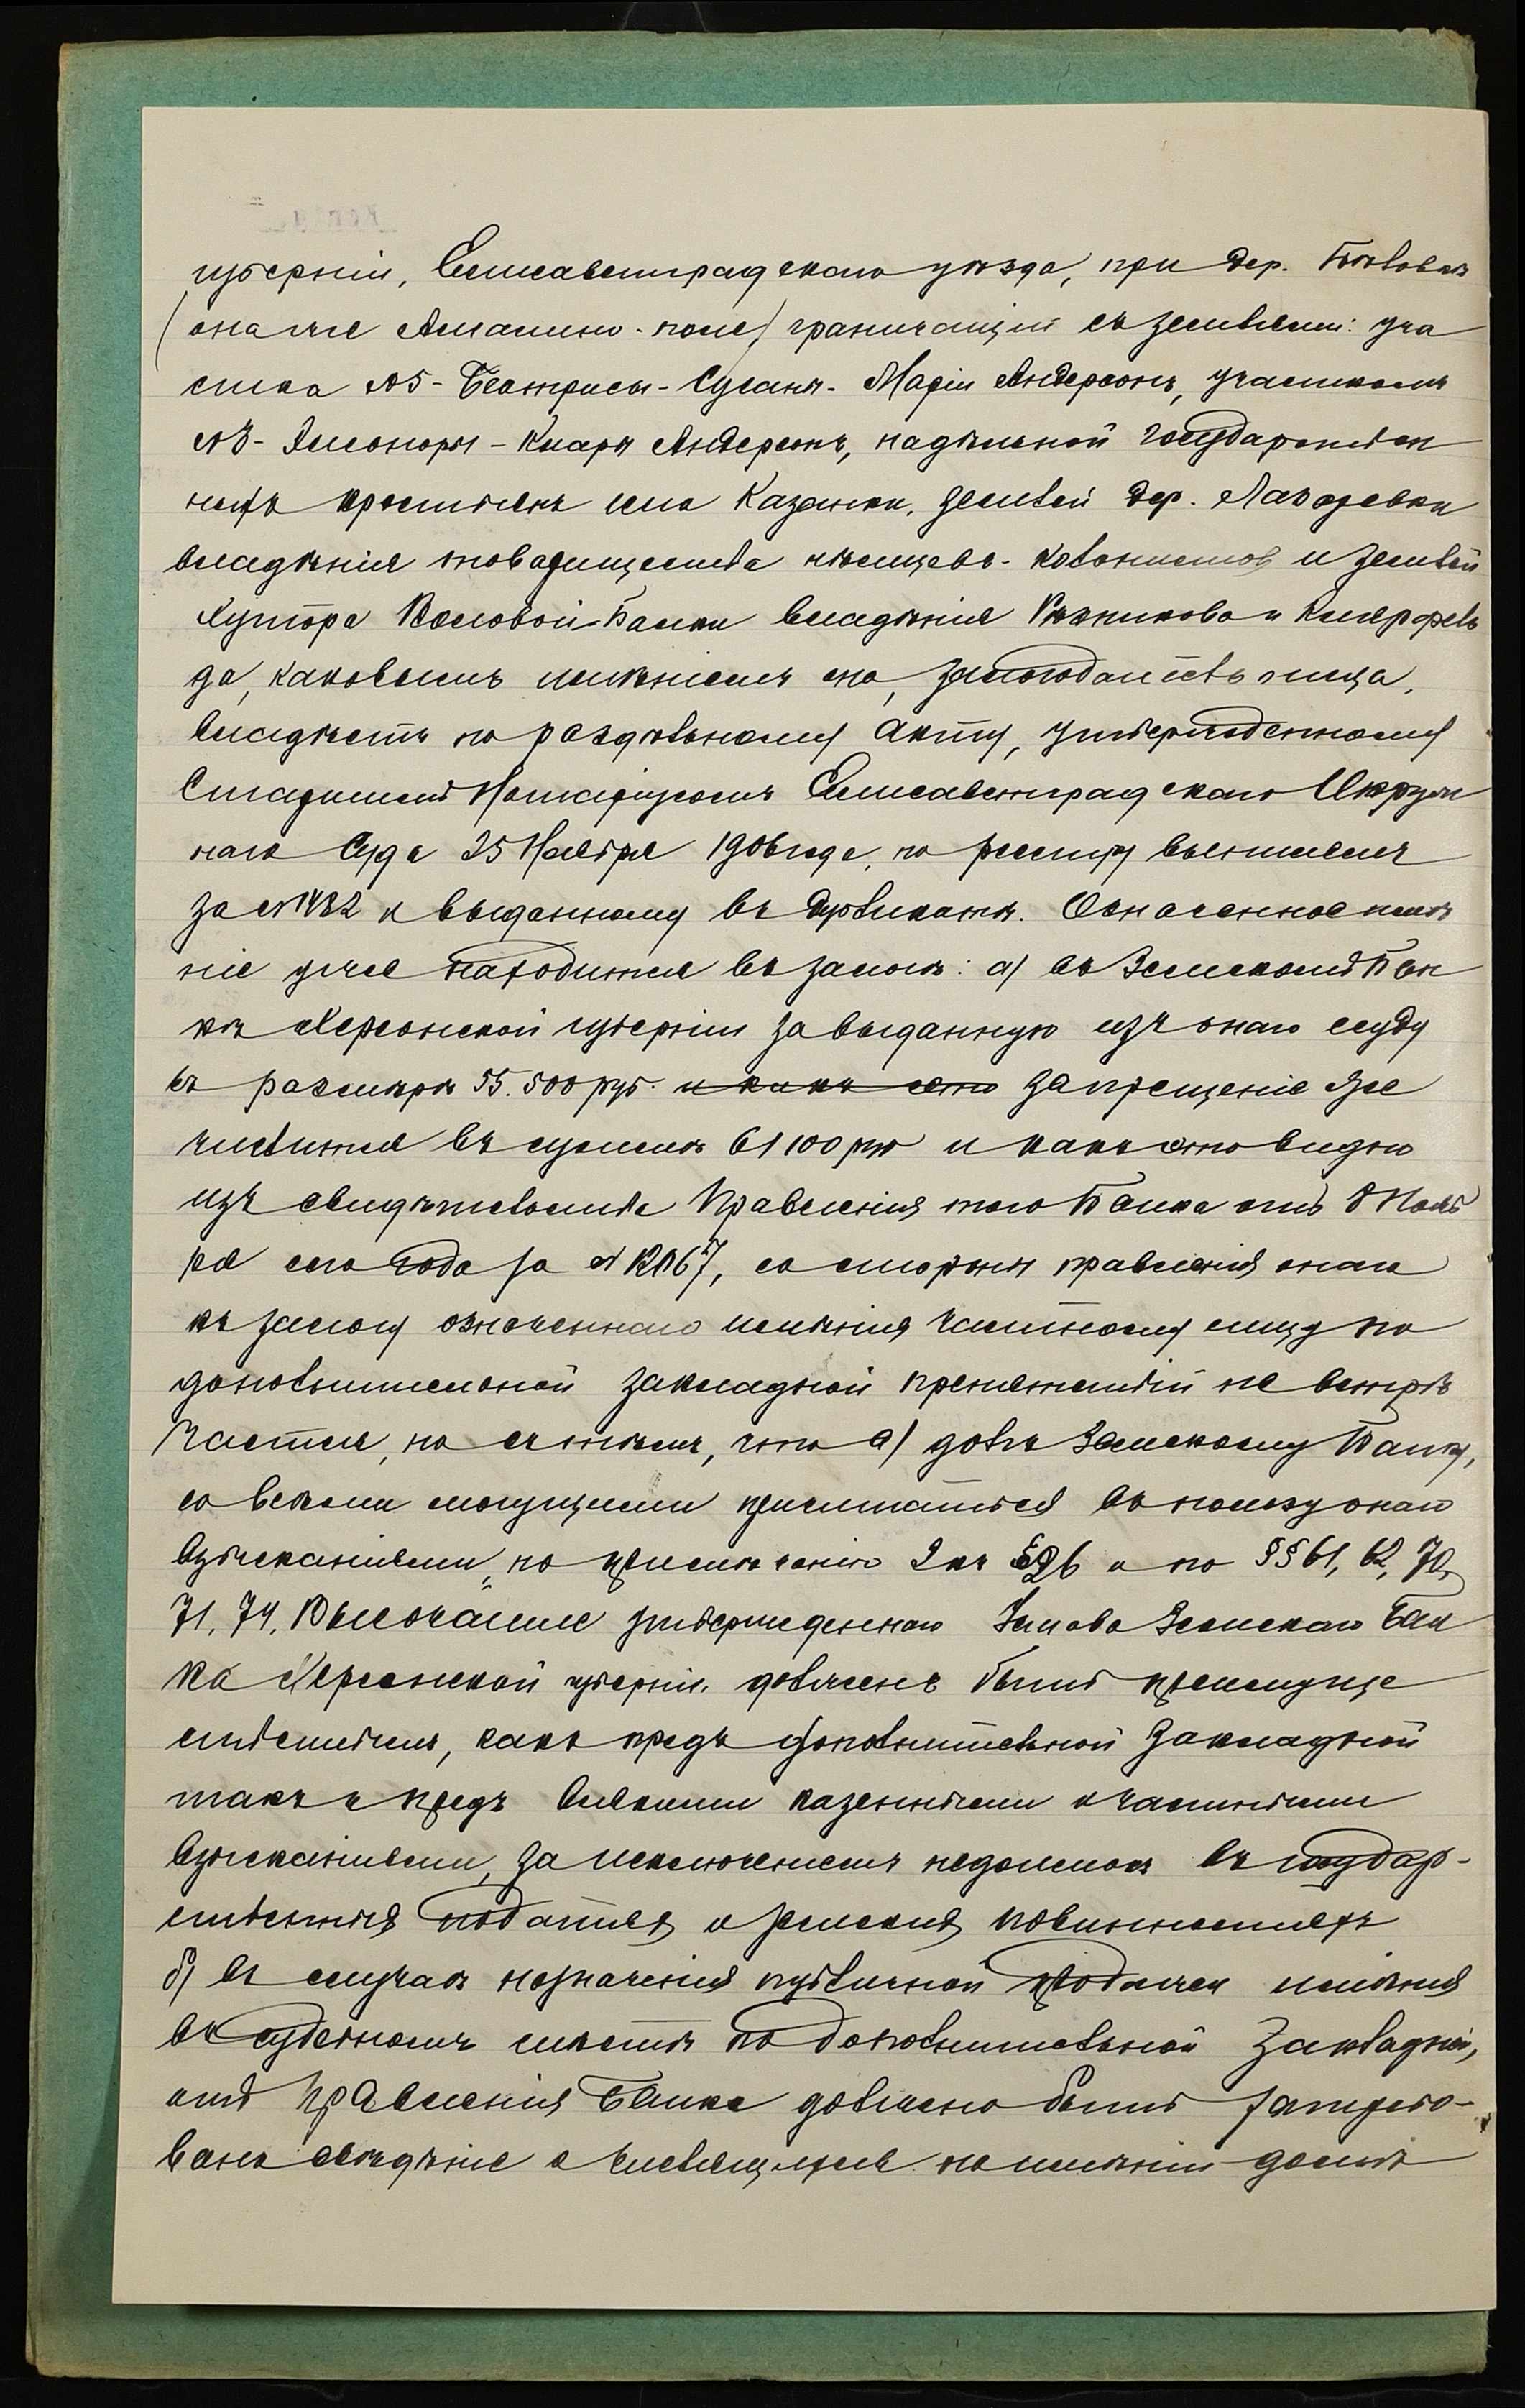 губерніи, Елисаветградскаго уѣзда, при дер.
(она же Аманино-поле) граничащій съ землями: уча
стка №5 - Беатрисы-Сусаны-Маріи Андерсонъ, участкомъ
Элеоноры-Клары Андерсонъ, надѣльной государствен
ныхъ крестьянъ села Казанки, землей дер. Лазаревки
владѣнія товарищества нѣмцевъ-колонистов и землей
хутора Волловой-Балки владѣнія Рѣзникова и Клярфель
да, каковымъ имѣніемъ она, залогодательница,
владѣетъ по раздѣльному акту, утвержденному
Старшимъ Нотаріусомъ Елисаветградскаго Окруж
наго Суда 25 Ноября 1906 года, по реестру
за №1482 и выданному въ дубликатѣ. Означенное имѣ
ніе уже находится въ залогѣ: а) въ Земскомъ Бан
кѣ Херсонской губерніи за выданную изъ онаго ссуду
въ размѣрѣ 55.500 руб. и какъ это запрещеніе же
числится въ суммѣ 61100 руб и какъ это видно
изъ свидѣтельства Правленія того Банка отъ 8 Нояб
ря сего года за № 12167, со стороны правленія онаго
къ залогу означеннаго имѣнія частному лицу по
дополнительной закладной препятствій не встрѣ
чается, но съ тѣмъ, что а) долгъ Земскому Банку,
со всѣми могущими причитаться въ пользу онаго
взысканіями, по примѣчанію 2 къ § 26 и по §§ 61, 62, 70,
71, 74, Высочайше утвержденнаго Устава Земскаго Бан
ка Херсонской губерніи, долженъ быть преимуще
ственнымъ, какъ предъ дополнительной закладной
такъ и предъ всякими казенными и частными
взысканіями, за исключеніемъ недоимокъ въ государ-
ственныя податяхъ и земскихъ повинностяхъ
б) въ случаѣ назначенія публичной продажи имѣнія
въ судебномъ мѣстѣ по дополнительной закладной,
отъ Правленія Банка должно быть затребо-
вано свѣдѣніе о числящемся на имѣніи долгѣ